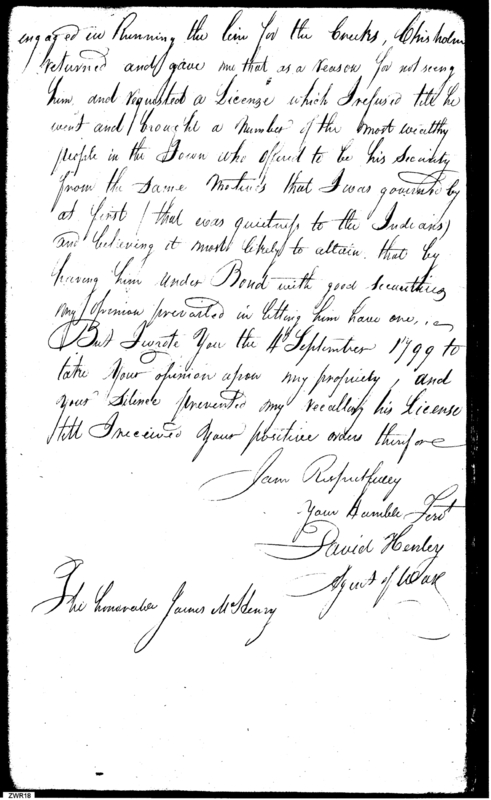 engaged in Running the line for the Creeks, Chisholm
returned and gave me that as a reason for not seeing
him and requested a License which I refused till he
went and brought a number of the most wealthy
people in the Town who offered to be his Security
from the same motives that I was governed by
at first (that was quietness to the Indians)
and believing it most likely to attain that by
having him under Bond with good securities
my opinion prevailed in letting him have one,.
But I wrote You the 4th September 1799 to
take Your opinion upon my propriety, and
your silence prevented my recalling his License
till I received Your positive orders therefore
I am Respectfully
Your Humble Servt
David Henley
Agent of War
The honorable James McHenry
ZWR18